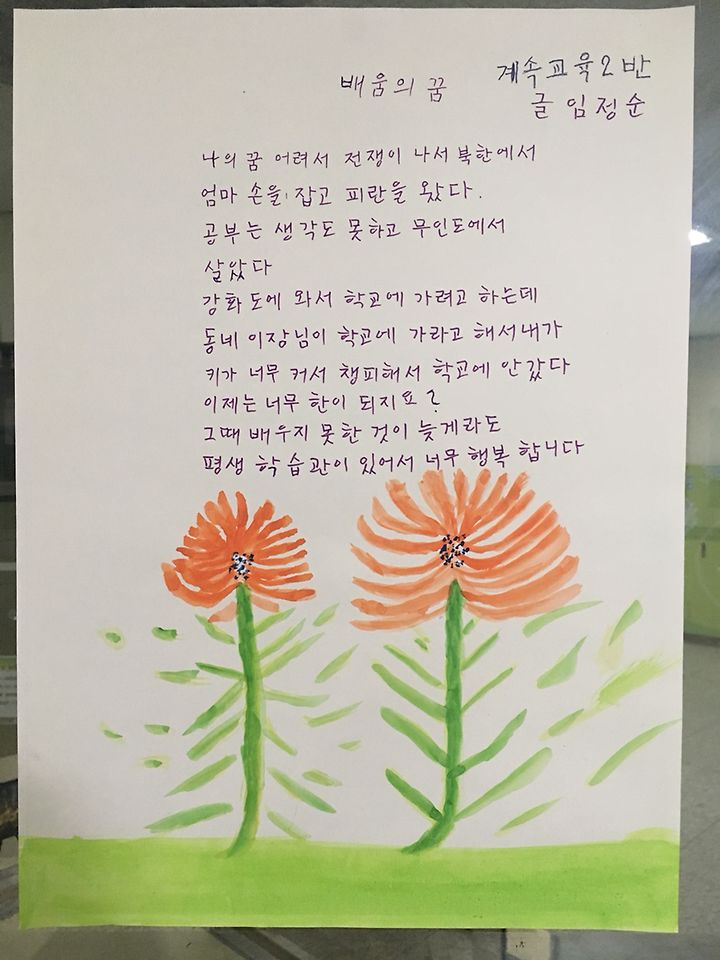 배움의 꿈 계속교육2반
글 임정순
나의 꿈 어려서 전쟁이 나서 북한에서
엄마 손을 잡고 피란을 왔다.
공부는 생각도 못하고 무인도에서
살았다
강화도에 와서 학교에 가려고 하는데
동네 이장님이 학교에 가라고 해서 내가
키가 너무 커서 챙피해서 학교에 안 갔다
이제는 너무 한이 되지요?
그때 배우지 못한 것이 늦게라도
평생 학습관이 있어서 너무 행복 합니다